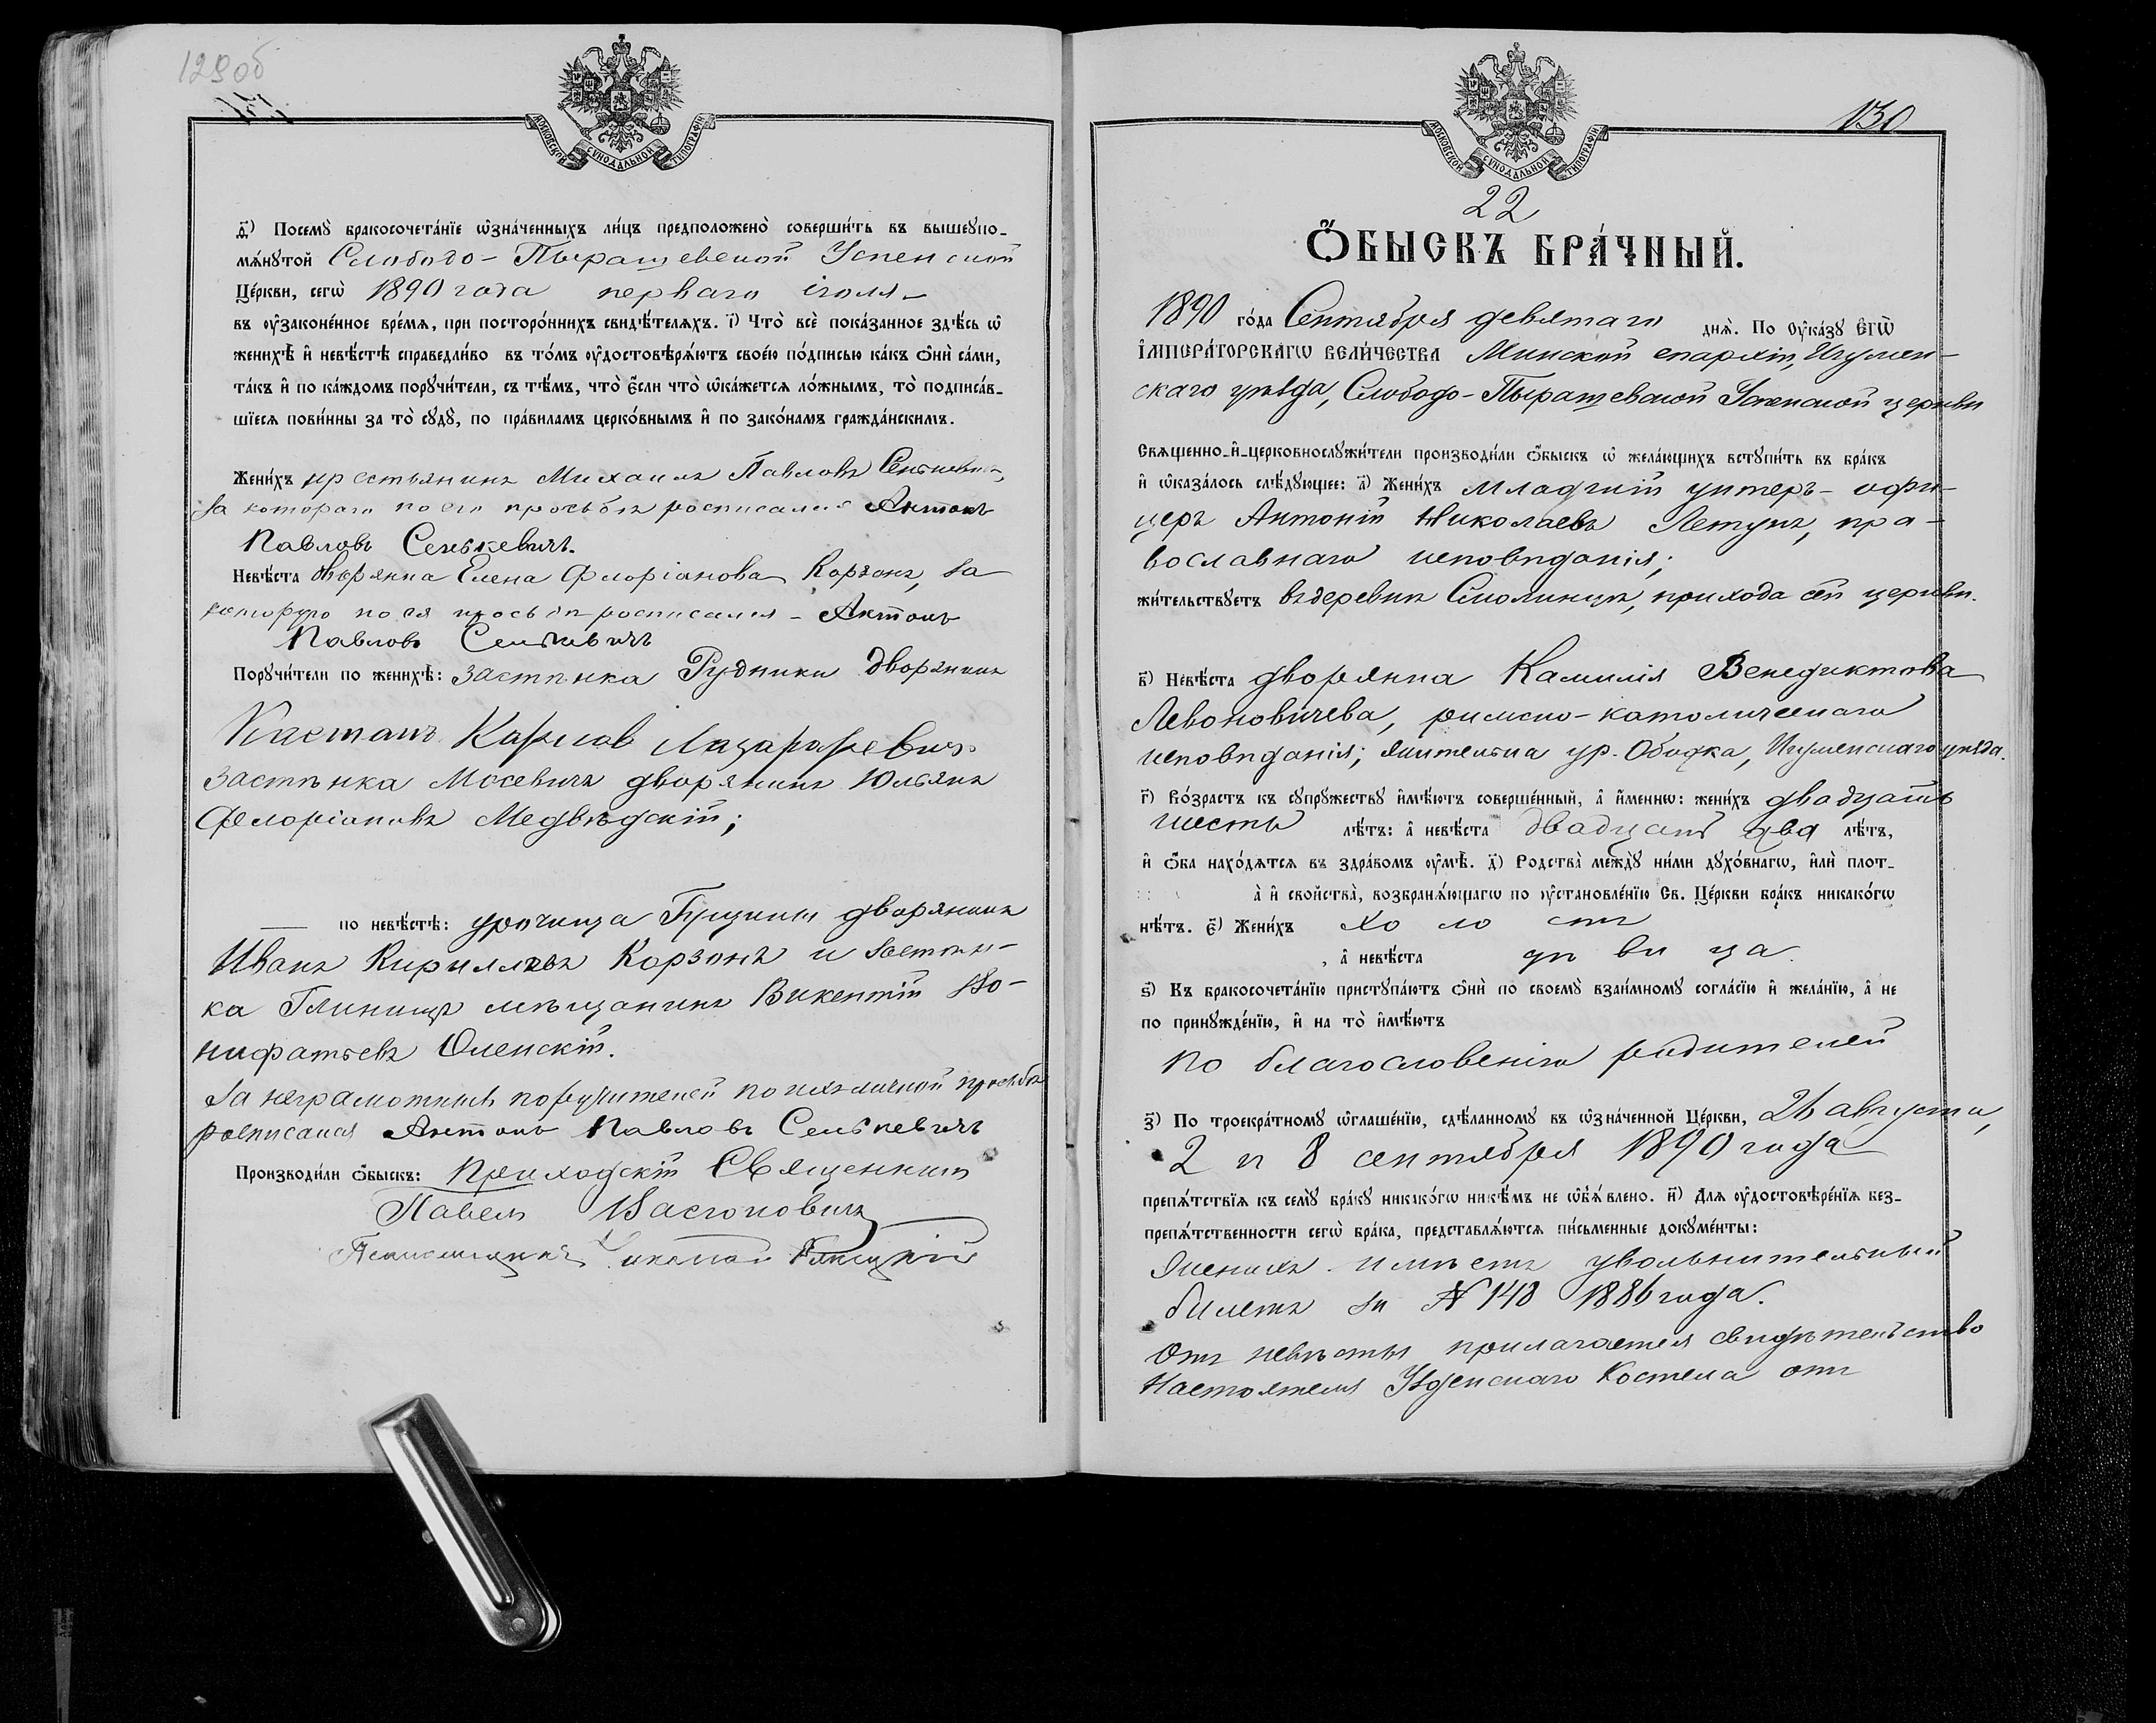 129об
МОСКОВСКОЙ СѴНОДАЛЬНОЙ ТИПОГРАФІИ
д҃) Посемꙋ̀ бракосочета́нїе ѡ҆зна́ченныхъ ли́цъ предположено̀ соверши́ть въ вышеꙋпо-
мѧ́нꙋтой Слободо-Пырашевской Успенской
Це́ркви, сегѡ̀ 1890 года перваго іюля
въ ᲂу҆законе́нное вре́мѧ, при посторо́ннихъ свидѣ́телѧхъ. і҃) Что̀ всѐ пока́занное здѣ́сь ѡ҆
женихѣ̀ и҆ невѣ́стѣ справедли́во въ то́мъ ᲂу҆достовѣрѧ́ютъ свое́ю по́дписью ка́къ ѻ҆нѝ са́ми,
та́къ и҆ по ка́ждомъ порꙋчи́тели, съ тѣ́мъ, что̀ є҆́сли что̀ ѡ҆ка́жется ло́жнымъ, то̀ подписа́в-
шїесѧ пови́нны за то̀ сꙋдꙋ̀, по пра́виламъ церко́внымъ и҆ по зако́намъ гражда́нскимъ.
Жени́хъ крестьянинъ Михаилъ Павловъ Сенькевичъ,
за котораго по его просьбѣ росписался Антонъ
Павловъ Сенькевичъ.
Невѣ́ста дворянка Елена Флоріанова Корзонъ, за
которую по ея просьбѣ росписался - Антонъ
Павловъ Сенькевичъ
Порꙋчи́тели по женихѣ̀: застѣнка Рудники дворянинъ
Каетанъ Карлов Лазараревичъ
застѣнка Мосевичъ дворянинъ Юльянъ
Флоріановъ Медвѣдскій;
по невѣ́стѣ: урочища Гущины дворянинъ
Иванъ Кирилловъ Корзонъ и застѣн-
ка Глинище мѣщанинъ Викентій Во-
нифатьевъ Оленскій.
За неграмотныхъ поручителей по ихъ личной просьбѣ
росписался Антонъ Павловъ Сенькевичъ
Производи́ли ѻ҆́быскъ: Приходскій Священникъ
Павелъ
Псаломщикъ Николай
130
МОСКОВСКОЙ СѴНОДАЛЬНОЙ ТИПОГРАФІИ
22
Ѻ҆́БЫСКЪ БРА́ЧНЫЙ.
1890 го́да Сентября девятаго днѧ̀. По ᲂу҆ка́зꙋ Є҆гѡ̀
І҆мпера́торскагѡ Вели́чества Минской епархіи, Игумен-
скаго уѣзда, Слободо-Пырашевской Успенской церкви
Свѧщенно-и҆-церковнослꙋжи́тели производи́ли ѻ҆́быскъ ѡ҆ жела́ющихъ встꙋпи́ть въ бра́къ
и҆ ѡ҆каза́лось слѣ́дꙋющее: а҃) Жени́хъ младшій унтеръ-офи-
церъ Антоній Николаевъ Летунъ, пра-
вославнаго исповѣданія;
жи́тельствꙋетъ въ деревнѣ Смолинцѣ, прихода сей церкви.
в҃) Невѣ́ста дворянка Камилія Венедиктова
Левоновичева, римско-католическаго
исповѣданія; жительница ур. Ободка, Игуменскаго уѣзда.
г҃) Во́зрастъ къ сꙋпрꙋ́жествꙋ и҆мѣ́ютъ соверше́нный, а҆ и҆́меннѡ: жени́хъ двадцать
шесть лѣ́тъ: а҆ невѣ́ста двадцать два лѣ́тъ,
и҆ ѻ҆́ба нахо́дѧтсѧ въ здра́вомъ ᲂу҆мѣ̀. д҃) Родства̀ междꙋ̀ ни́ми дꙋхо́внагѡ, и҆лѝ плот-
а̀ и҆ сво́йства̀, возбранѧ́ющагѡ по ᲂу҆становле́нїю Св. Це́ркви бра́къ никако́гѡ
нѣ́тъ. є҃) Жени́хъ холостъ
, а҆ невѣ́ста дѣвица.
ѕ҃) Къ бракосочета́нїю пристꙋпа́ютъ ѻ҆нѝ по своемꙋ̀ взаи́мномꙋ согла́сїю и҆ жела́нїю, а҆ не
по принꙋжде́нїю, и҆ на то̀ и҆мѣ́ютъ
по благословенію родителей
з҃) По троекра́тномꙋ ѡ҆глаше́нїю, сдѣ́ланномꙋ въ ѡ҆зна́ченной Це́ркви, 26 августа,
2 и 8 сентября 1890 года
препѧ́тствїѧ къ семꙋ̀ бра́кꙋ никако́гѡ никѣ́мъ не ѡ҆б̾ѧ́влено. и҃) Длѧ ᲂу҆достовѣре́нїѧ без-
препѧ́тственности сегѡ̀ бра́ка, представлѧ́ютсѧ пи́сьменные докꙋме́нты:
Женихъ имѣетъ увольнительный
билетъ за № 148 1886 года.
Отъ невѣсты прилагается свидѣтельство
Настоятеля Узденскаго Костела отъ